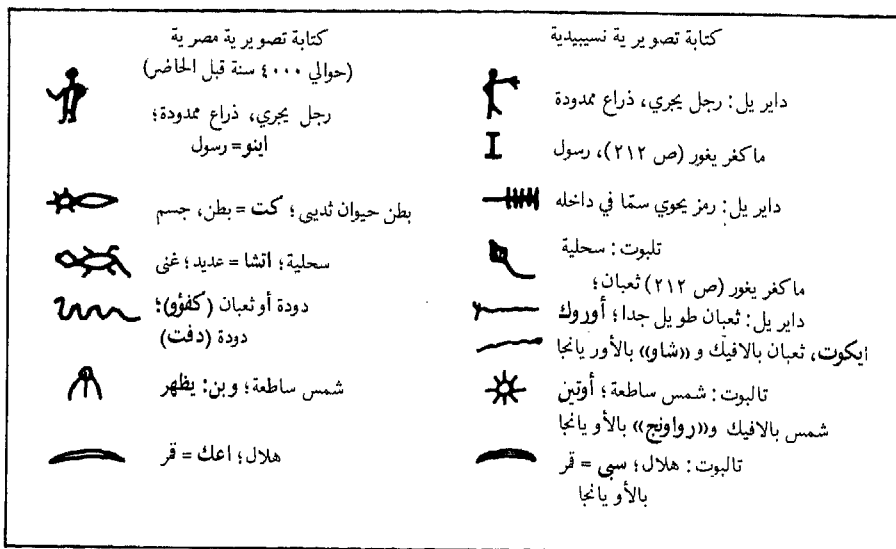 كتابة تصويرية نسيبيدية
دايريل: رجل يجري، ذراع ممدودة
ماكغريغور (ص ٢١٢)، رسول
دايريل: رمز يحوي سمّا في داخله
تلبوت: سحلية
ماكغريغور (ص ٢١٢) ثعبان؛
دايريل: ثعبان طويل جدا؛ أوروك
ايكوت، ثعبان بالافيك و «شاو» بالأوريانجا
تالبوت: شمس ساطعة؛ أوتين
شمس بالافيك و«رواونج» بالأويانجا
تالبوت: هلال؛ سبى = قمر
بالأويانجا
كتابة تصويرية مصرية
(حوالي ٤٠٠٠ سنة قبل الحاضر)
رجل يجري، ذراع ممدودة؛
اينو= رسول
بطن حيوان ثديى؛ كت = بطن، جسم
سحلية؛ اتشا = عديد؛ غنى
دودة أو ثعبان (كفؤو)؛
دودة (دفت)
شمس ساطعة؛ وبن: يظهر
هلال؛ اعك = قمر